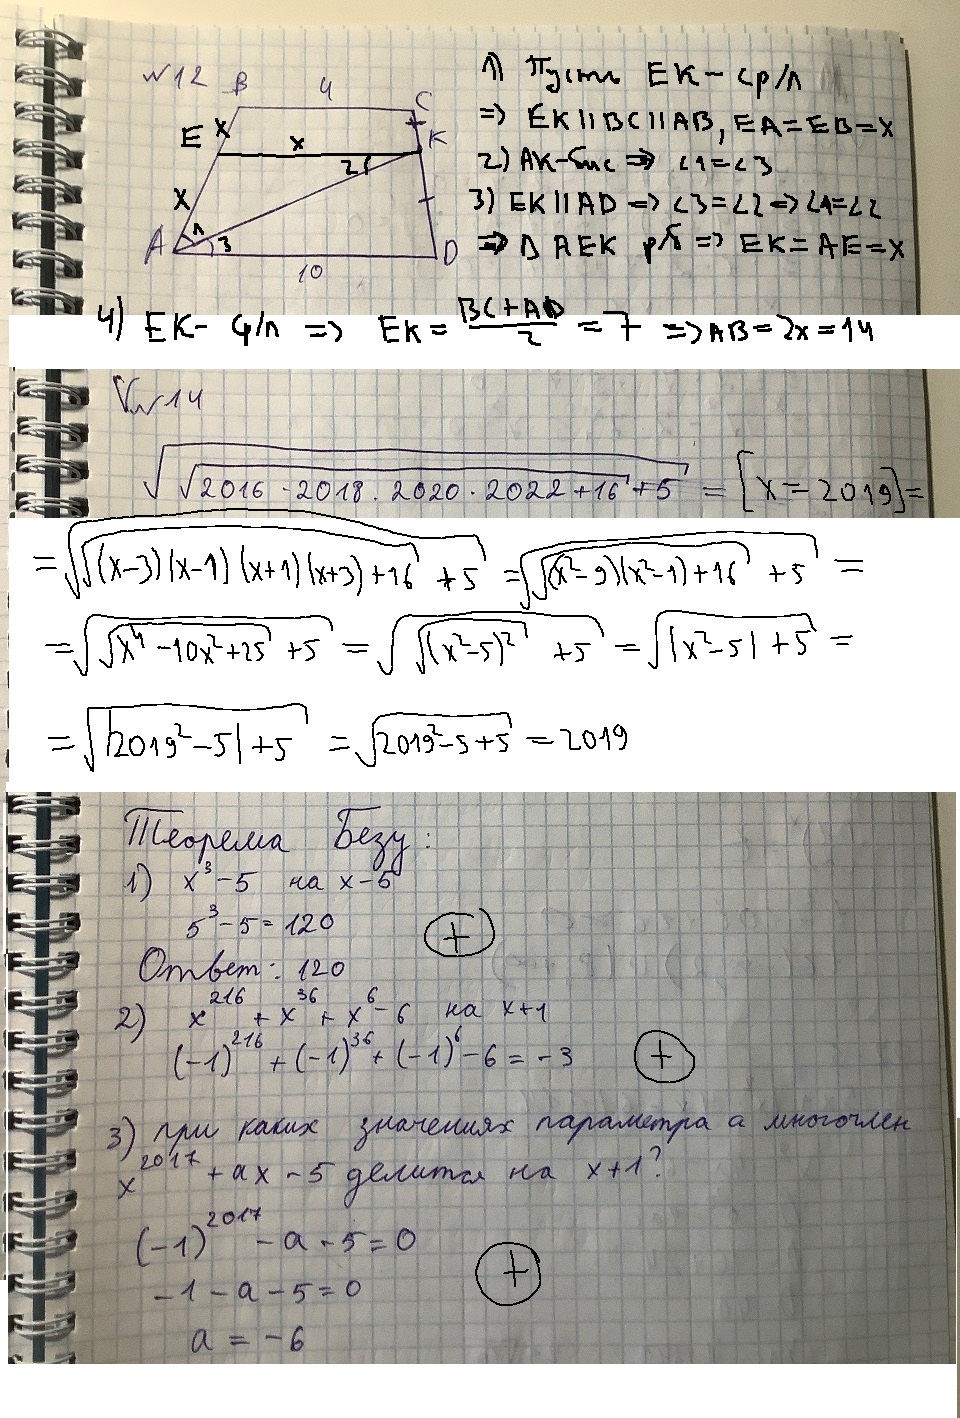 №12
B 4 C
E x x K
x 2
A 1 3 D
10
1) Пусть EK - ср/л
=> EK || BC || AB, EA = EB = x
2) AK - бис => ∠1 = ∠3
3) EK || AD => ∠3 = ∠2 => ∠1 = ∠2
=> Δ AEK р/б => EK = AE = x
4) EK - ср/л => EK = (BC + AD)/2 = 7 => AB = 2x = 14
V№14
√(√(2016 · 2018 · 2020 · 2022 + 16) + 5) = [x = 2019] =
= √(√((x-3)(x-1)(x+1)(x+3) + 16) + 5) = √(√((x²-9)(x²-1) + 16) + 5) =
= √(√(x⁴ - 10x² + 25) + 5) = √(√((x²-5)²) + 5) = √(|x²-5| + 5) =
= √(|2019² - 5| + 5) = √(2019² - 5 + 5) = 2019
Теорема Безу:
1) x³ - 5 на x - 5
5³ - 5 = 120
+
Ответ: 120
2) x²¹⁶ + x³⁶ + x⁶ - 6 на x + 1
(-1)²¹⁶ + (-1)³⁶ + (-1)⁶ - 6 = -3
+
3) при каких значениях параметра a многочлен
x²⁰¹⁷ + ax - 5 делится на x + 1?
(-1)²⁰¹⁷ - a - 5 = 0
-1 - a - 5 = 0
+
a = -6